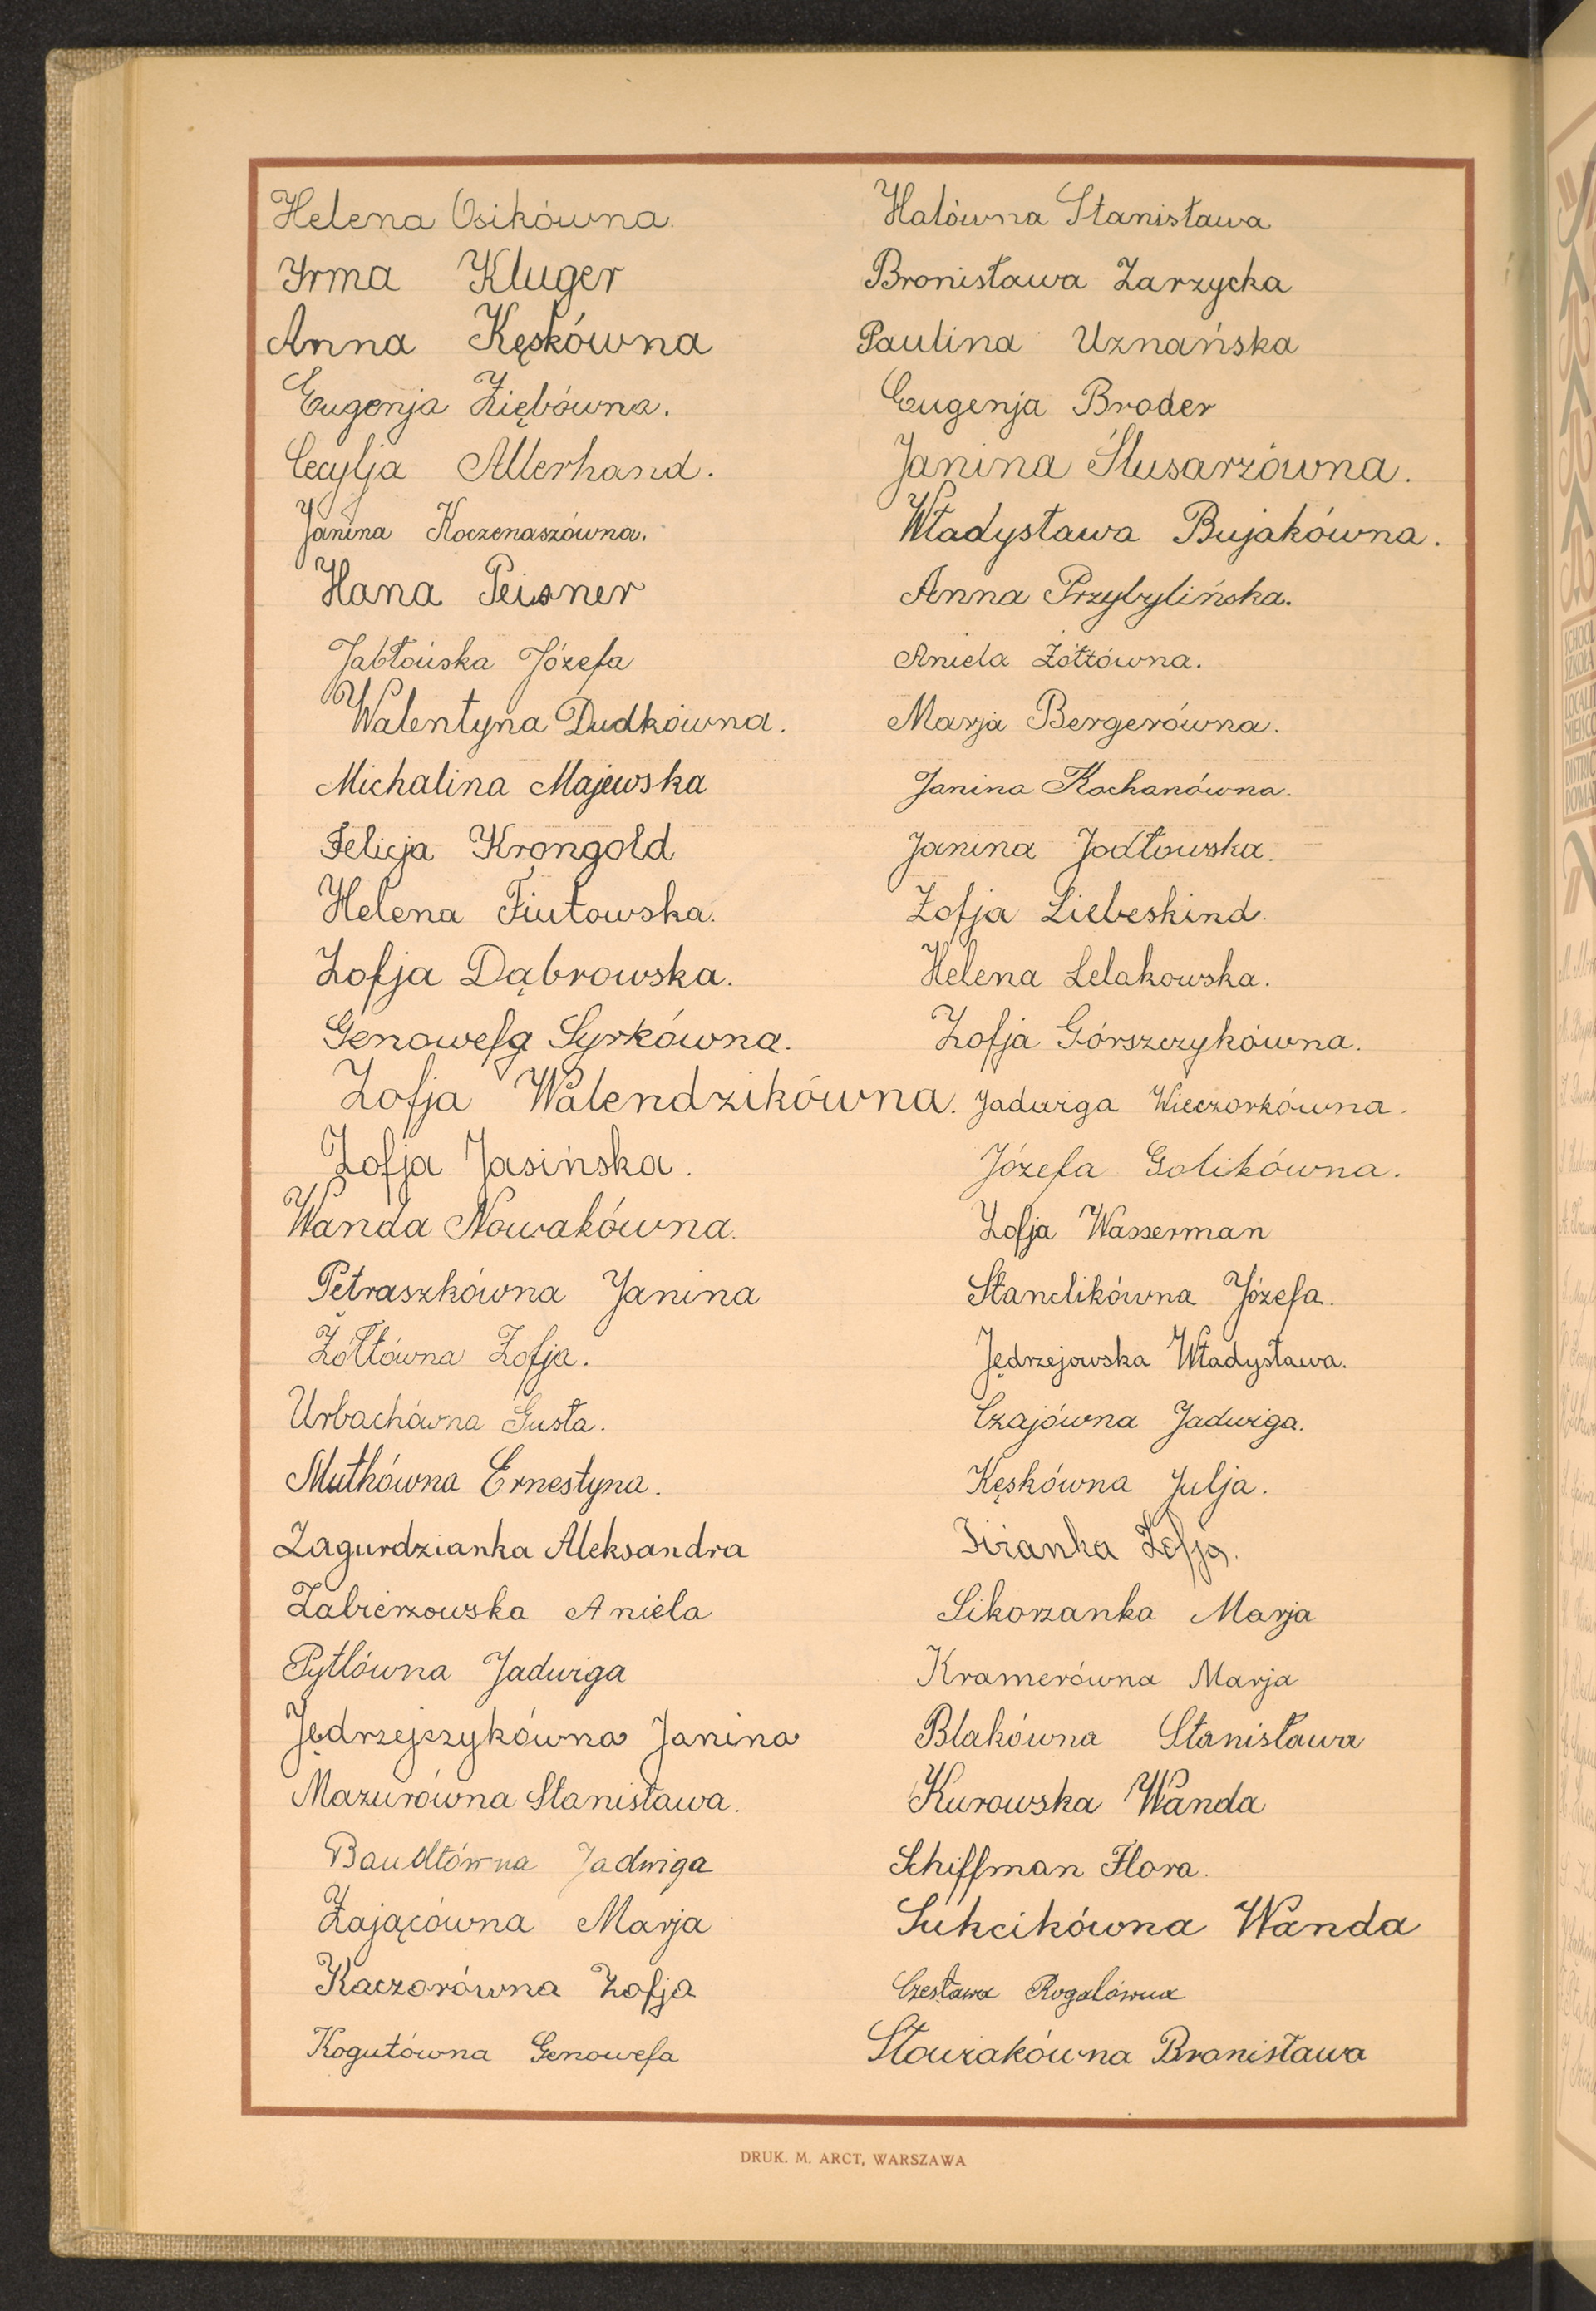 Helena Osikówna.
Irma Kluger
Anna Kęskówna
Eugenja Ziębówna.
Cecylja Allerhand.
Janina Koczenaszówna.
Hana Peisner
Jabłońska Józefa
Walentyna Dudkówna.
Michalina Majewska
Felicja Krongold
Helena Fiutowska.
Zofja Dąbrowska.
Genowefa Syrkówna.
Zofja Walendzikówna.
Zofja Jasińska.
Wanda Nowakówna.
Pętraszkówna Janina
Żółtówna Zofja.
Urbachówna Gusta.
Mutkówna Ernestyna.
Zagurdzianka Aleksandra
Zabierzowska Aniela
Pytlówna Jadwiga
Jędrzejszykówna Janina
Mazurówna Stanisława.
Baudtówna Jadwiga
Zającówna Marja
Kaczorówna Zofja
Kogutówna Genowefa
Halówna Stanisława
Bronisława Zarzycka
Paulina Uznańska
Eugenja Broder
Janina Ślusarzówna.
Władysława Bujakówna.
Anna Przybylińska.
Aniela Żółtówna.
Marja Bergerówna.
Janina Kochanówna.
Janina Jodłowska.
Zofja Liebeskind.
Helena Lelakowska.
Zofja Górszczykówna.
Jadwiga Wieczorkówna.
Józefa Golikówna.
Zofja Wasserman
Stanclikówna Józefa.
Jędrzejowska Władysława.
Czajówna Jadwiga.
Kęskówna Julja.
Zofja.
Sikorzanka Marja
Kramerówna Marja
Blakówna Stanisława
Kurowska Wanda
Schiffman Flora.
Sukcikówna Wanda
Czesława Rogalówna
Słowiakówna Bronisława
DRUK. M. ARCT, WARSZAWA